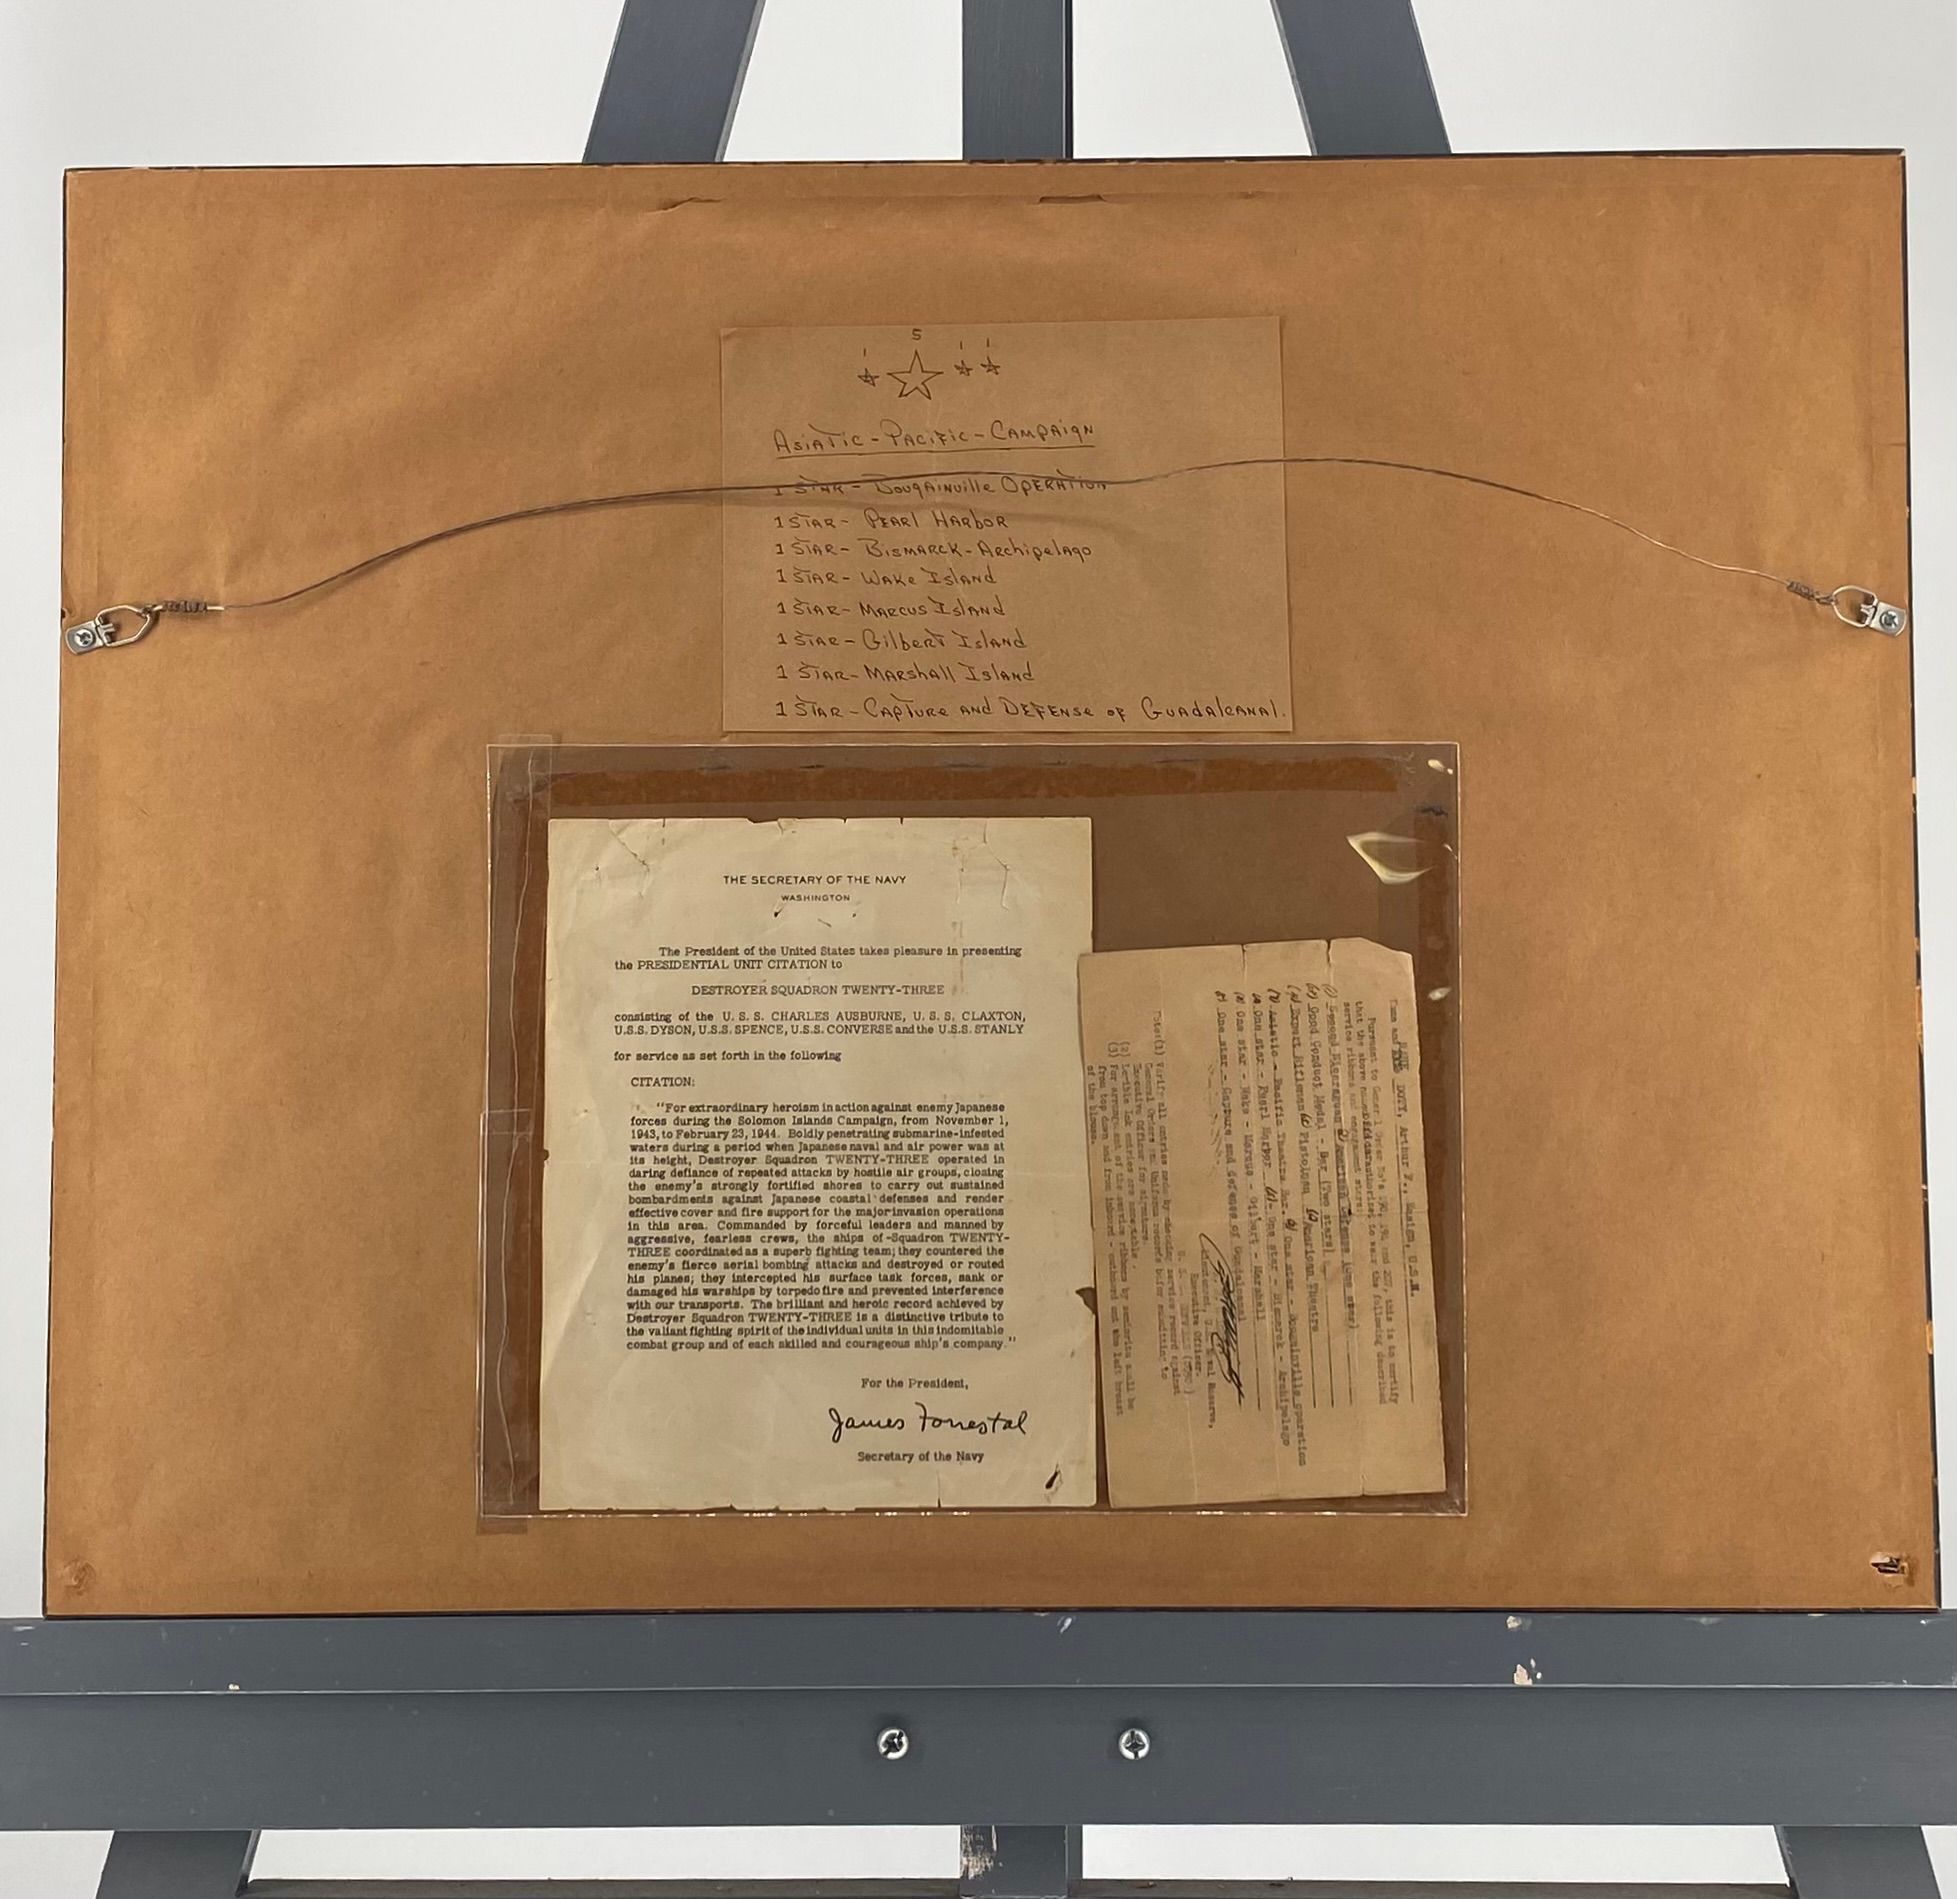 5
1 1 1
Asiatic-Pacific-Campaign
1 Star- Bougainville Operation
1 Star- Pearl Harbor
1 Star- Bismarck-Archipelago
1 Star- Wake Island
1 Star- Marcus Island
1 Star- Gilbert Island
1 Star- Marshall Island
1 Star-Capture and Defense of Guadalcanal.
THE SECRETARY OF THE NAVY
WASHINGTON
The President of the United States takes pleasure in presenting
the PRESIDENTIAL UNIT CITATION to
DESTROYER SQUADRON TWENTY-THREE
consisting of the U. S. S. CHARLES AUSBURNE, U. S. S. CLAXTON,
U.S.S. DYSON, U.S.S. SPENCE, U.S.S. CONVERSE and the U.S.S. STANLY
for service as set forth in the following
CITATION:
"For extraordinary heroism in action against enemy Japanese
forces during the Solomon Islands Campaign, from November 1,
1943, to February 23, 1944. Boldly penetrating submarine-infested
waters during a period when Japanese naval and air power was at
its height, Destroyer Squadron TWENTY-THREE operated in
daring defiance of repeated attacks by hostile air groups, closing
the enemy's strongly fortified shores to carry out sustained
bombardments against Japanese coastal defenses and render
effective cover and fire support for the major invasion operations
in this area. Commanded by forceful leaders and manned by
aggressive, fearless crews, the ships of Squadron TWENTY-
THREE coordinated as a superb fighting team; they countered the
enemy's fierce aerial bombing attacks and destroyed or routed
his planes; they intercepted his surface task forces, sank or
damaged his warships by torpedo fire and prevented interference
with our transports. The brilliant and heroic record achieved by
Destroyer Squadron TWENTY-THREE is a distinctive tribute to
the valiant fighting spirit of the individual units in this indomitable
combat group and of each skilled and courageous ship's company."
For the President,
James Forrestal
Secretary of the Navy
Name and DOTY, Arthur F., Ensign, U.S.N.
Pursuant to General Order No's 190, 194 and 207, this is to certify
that the above named is authorized to wear the following described
service ribbons and engagement stars:
(1) Second Nicaraguan American Defense (one star)
Good Conduct Medal - Bar (Two stars)
Expert Rifleman Pistolman American Theatre
Asiatic - Pacific Theatre Bar. One star - Bougainville operation
One star - Pearl Harbor One star - Bismarck - Archipelago
One star - Wake - Marcus - Gilbert - Marshall
One star - Capture and defense of Guadalcanal
Lieutenant, U.S. Naval Reserve,
Executive Officer.
Note:(1) Verify all entries made by checking service record against
General Orders and Uniform records before submitting to
Executive Officer for signature.
(2) Legible ink entries are acceptable.
(3) For arrangement of the service ribbons by seniority shall be
from top down and from inboard - outboard on the left breast
of the blouse.